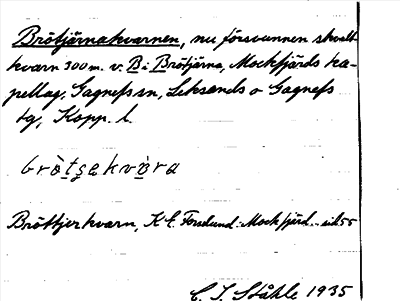 Brötjärnakvarnen, nu försvunnen skvalt
kvarn 300 m. v. B i Brötjärna, Mockfjärds ka-
pellag, Gagnefs sn, Leksands o Gagnefs
tg, Kopp. l.
brò̱tʂe̱kvò̱ra
Bröttjerkvarn, K E. Forslund: Mockfjärd.. sid 55
C. I. Ståhle 1935